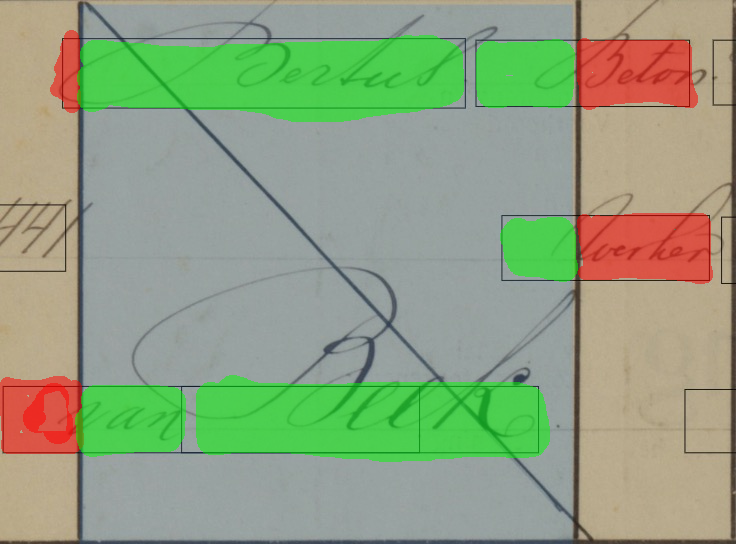 Bertus Beton
441 Werker
van Beek